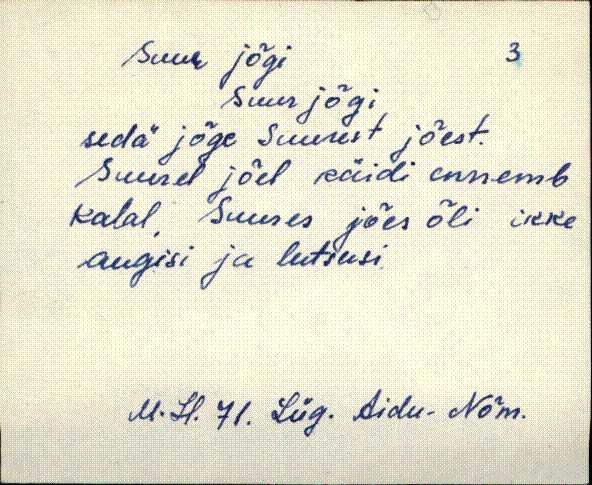 Suur jõgi 3
Suur jõgi
sedä jõge Suurest jõest.
Suurel jõel käidi ennemb
kalal, Suures jões õli ikke
augisi ja lutsusi.
M.H. 71. Lüg. Aidu-Nõm.